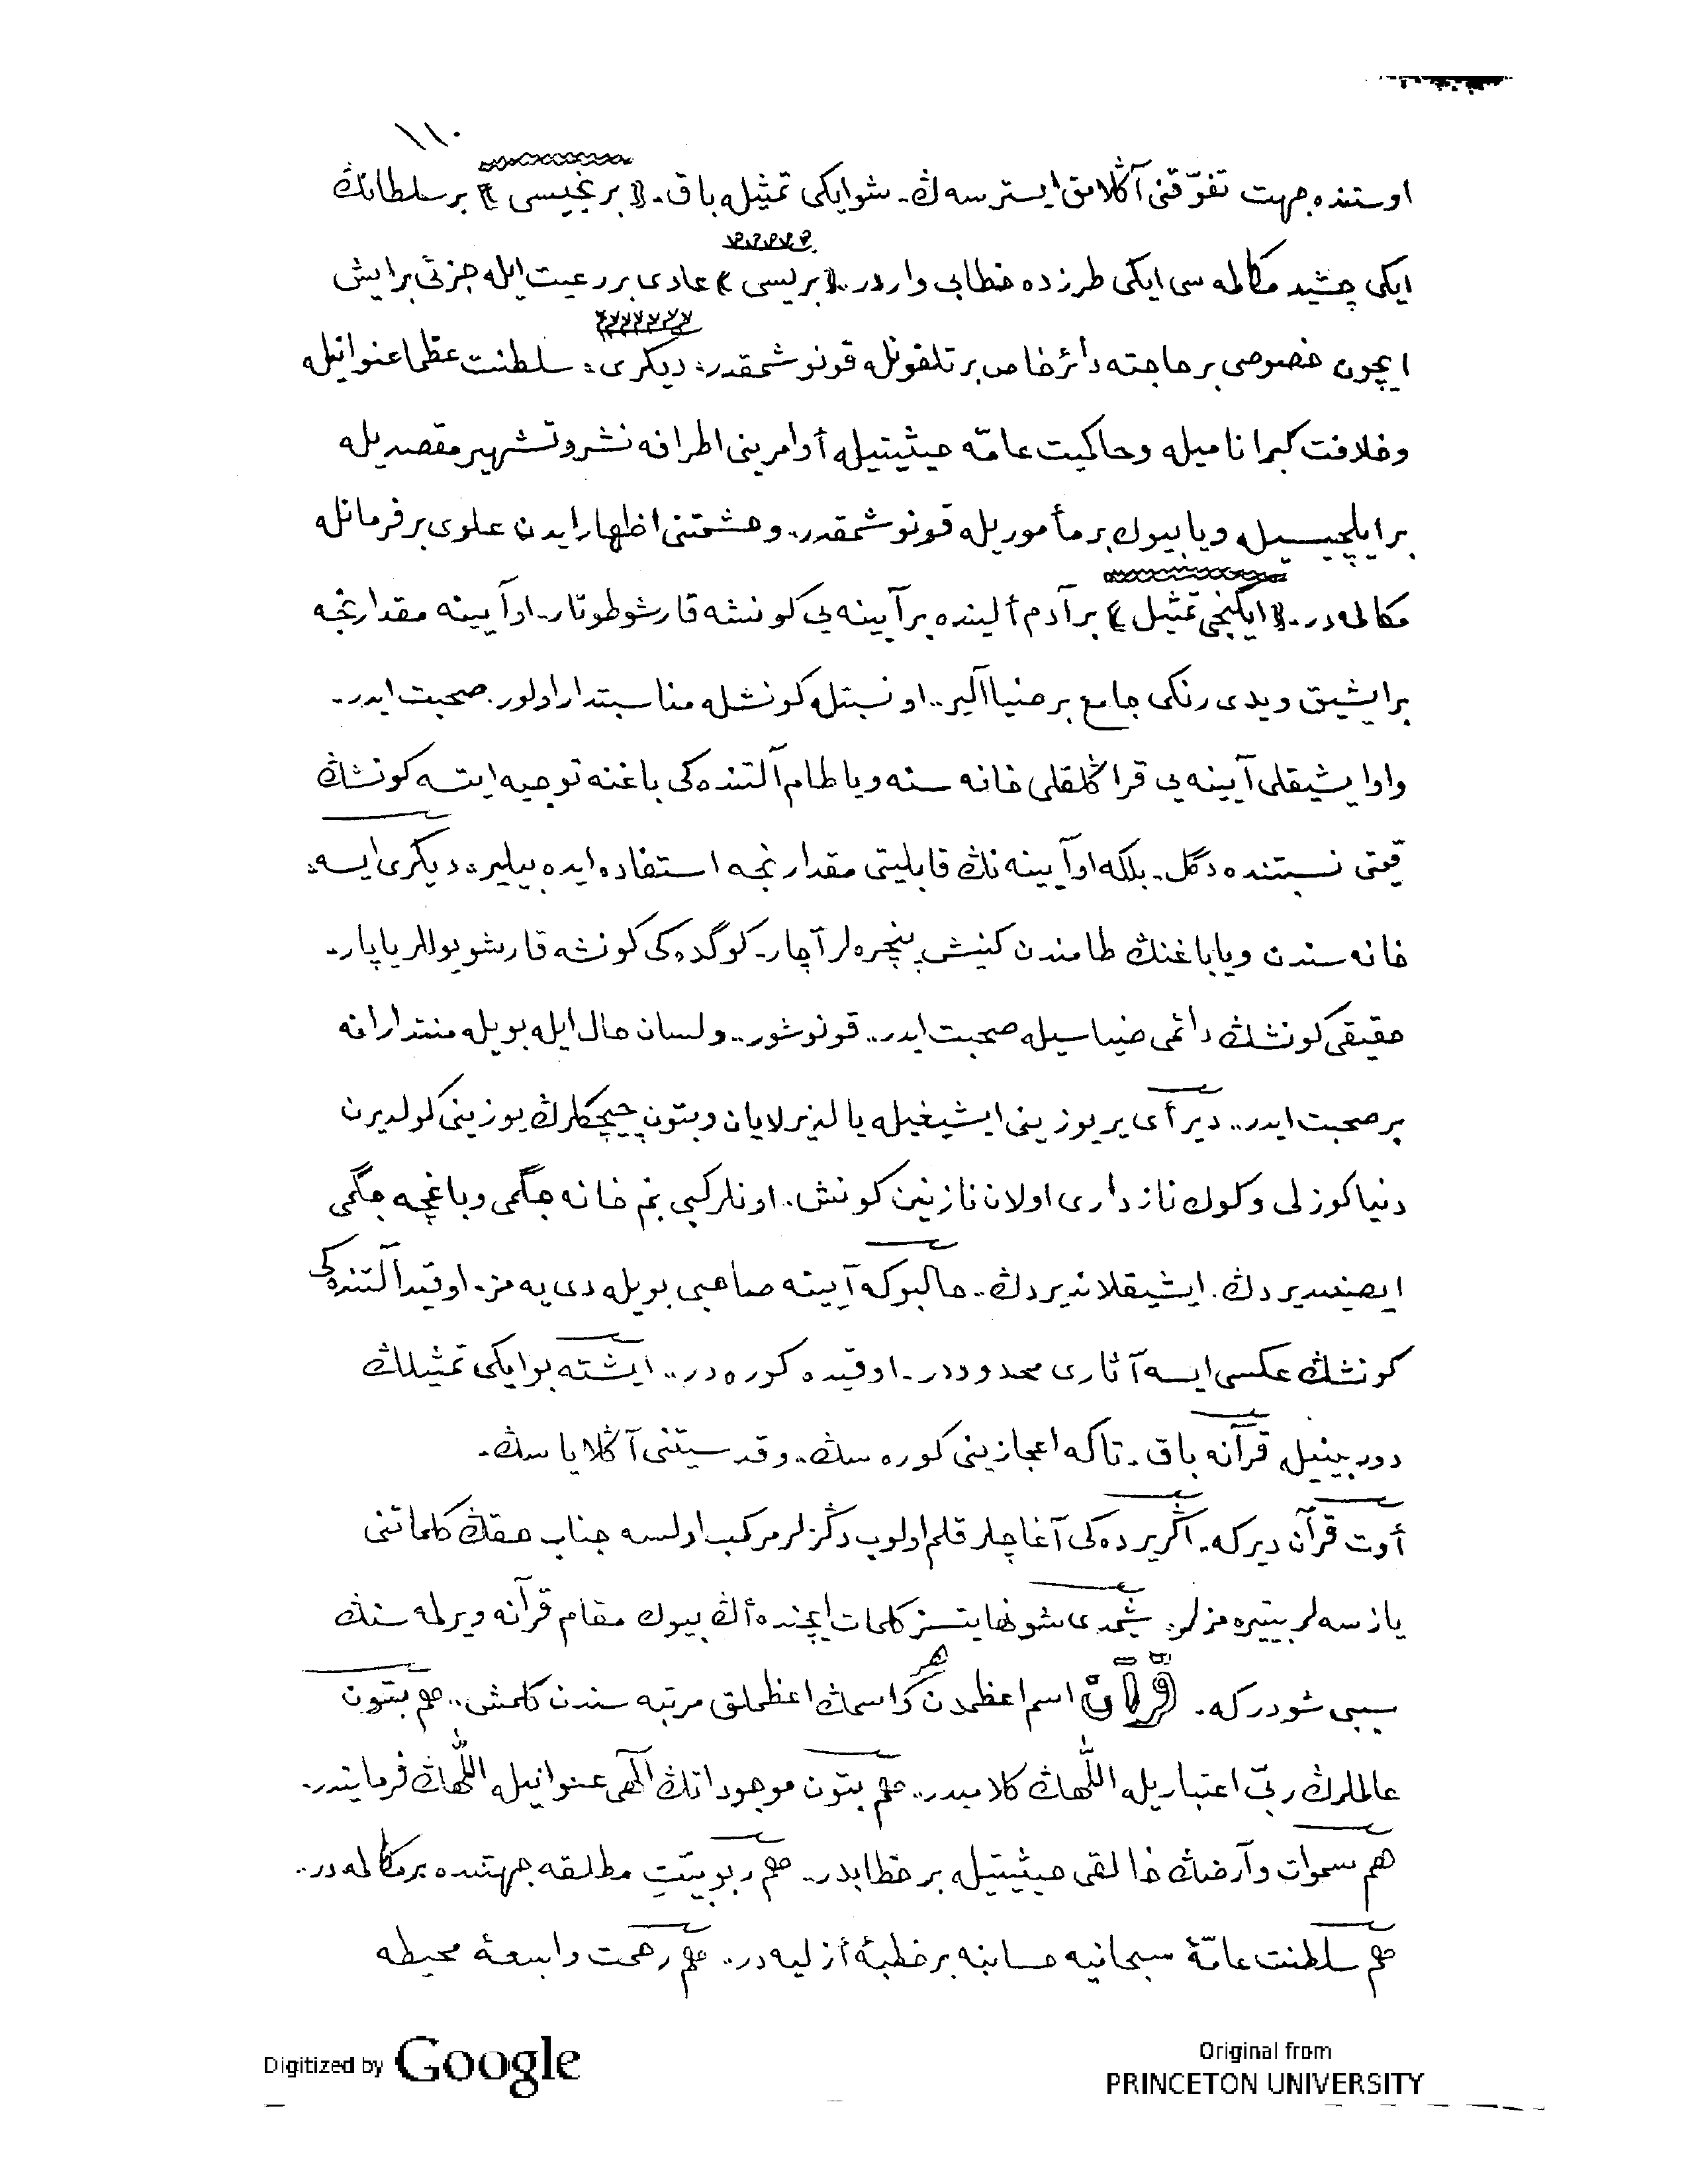 ١١٠
اوستنده جهت تفوّقنى آڭلامق ايسترسه‌ڭ. شو ايكى تمثيله باق. ﴿ برنجيسى ﴾ بر سلطانڭ
ايكى چشيد مكالمه سى ايكى طرزده خطابى واردر.. ﴿ بريسى ﴾ عادى بر رعيت ايله جزئى بر ايش
ايچون خصوصى بر حاجته دائر خاص بر تلفونله قونوشمقدر: ديكرى: سلطنت عظما عنوانيله
وخلافت كبرا ناميله وحاكميت عامّه حيثيتيله أوامرينى اطرافه نشر وتشهير مقصديله
بر ايلچيسيله ويا بيوك بر مأموريله قونوشمقدر.. وحشمتنى اظهار ايدن علوى بر فرمانله
مكالمه در.. ﴿ ايكنجى تمثيل ﴾ بر آدم ألينده بر آيينه يى كونشه قارشو طوتار.. او آيينه مقدارنجه
بر ايشيق ويدى رنكى جامع بر ضيا آلير.. او نسبتله كونشله مناسبتدار اولور. صحبت ايدر..
واو ايشيقلى آيينه يى قراڭلقلى خانه سنه ويا طام آلتنده كى باغنه توجيه ايتسه كونشڭ
قيمتى نسبتنده دگل. بلكه او آيينه نڭ قابليتى مقدارنجه استفاده ايده بيلير: ديكرى ايسه:
خانه سندن ويا باغنڭ طامندن كنيش پنجره لر آچار. كوگده كى كونشه قارشو يوللر ياپار.
حقيقى كونشڭ دائمى ضياسيله صحبت ايدر.. قونوشور.. ولسان حال ايله بويله منتدارانه
بر صحبت ايدر.. دير أى ير يوزينى ايشيغيله يالديزلايان وبتون چيچكلرڭ يوزينى كولديرن
دنيا كوزلى وكوك نازدارى اولان نازنين كونش.. اونلر كبى بنم خانه جگمى وباغچه جگمى
ايصينديردڭ. ايشيقلانديردڭ.. حالبوكه آيينه صاحبى بويله دى يه مز. او قيد آلتنده كى
كونشڭ عكسى ايسه آثارى محدوددر. او قيده كوره در.. ايشته بو ايكى تمثيلڭ
دوربينيله قرآنه باق. تاكه اعجازينى كوره سڭ. وقدسيتنى آڭلاياسڭ.
أوت قرآن ديركه. اگر يرده كى آغاچلر قلم اولوب دڭزلر مركب اولسه جناب حقڭ كلماتنى
يازسه لر بيتيره مزلر: شيمدى شو نهايتسز كلمات ايچنده أڭ بيوك مقام قرآنه ويرلمه سنڭ
سببى شودركه. قرآن اسم اعظمدن هر اسمڭ اعظملق مرتبه سندن كلمش.. هم بتون
عالملرڭ ربّى اعتباريله اللّٰهڭ كلاميدر.. هم بتون موجوداتڭ الٰهى عنوانيله اللّٰهڭ فرمانيدر.
هم سموات وأرضڭ خالقى حيثيتيله بر خطابدر.. هم ربوبيّت مطلقه جهتنده بر مكالمه در..
هم سلطنت عامّهٔ سبحانيه حسابنه بر خطبهٔ أزليه در.. هم رحمت واسعهٔ محيطه
Digitized by Google
Original from
PRINCETON UNIVERSITY